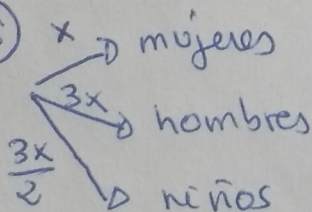 x mujeres
3x hombres
3x/2 niños